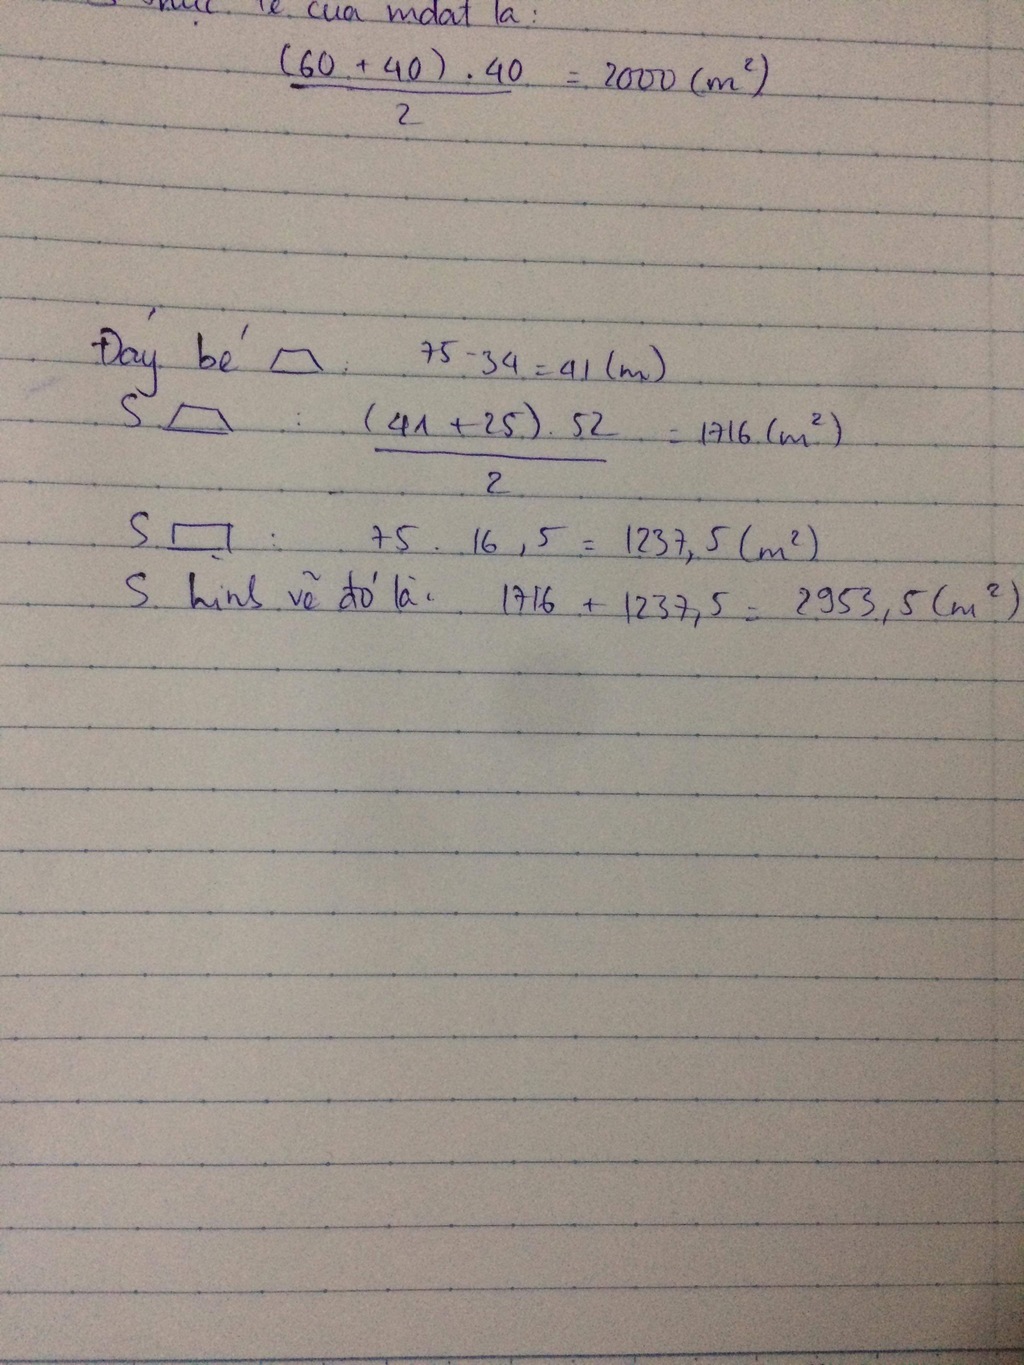 tế của mđất là:
(60 + 40) . 40 = 2000 (m²)
2
Đáy bé : 75 - 34 = 41 (m)
S : (41 + 25) . 52 = 1716 (m²)
2
S : 75 . 16,5 = 1237,5 (m²)
S hình vẽ đó là: 1716 + 1237,5 = 2953,5 (m²)